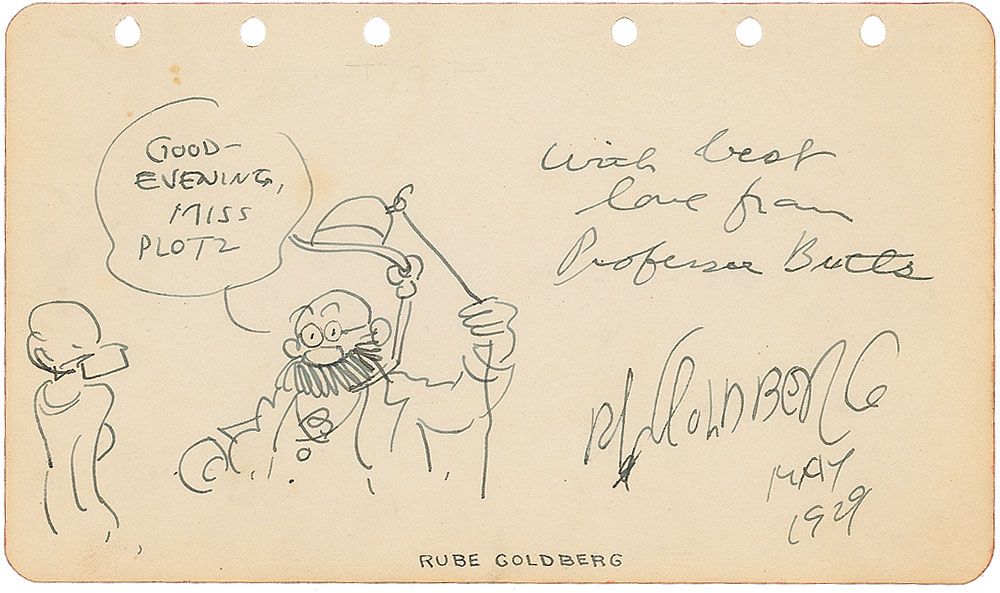 GOOD-
EVENING,
MISS
PLOTZ
With best
love from
Professor Butts
RUBE GOLDBERG
MAY
1929
RUBE GOLDBERG